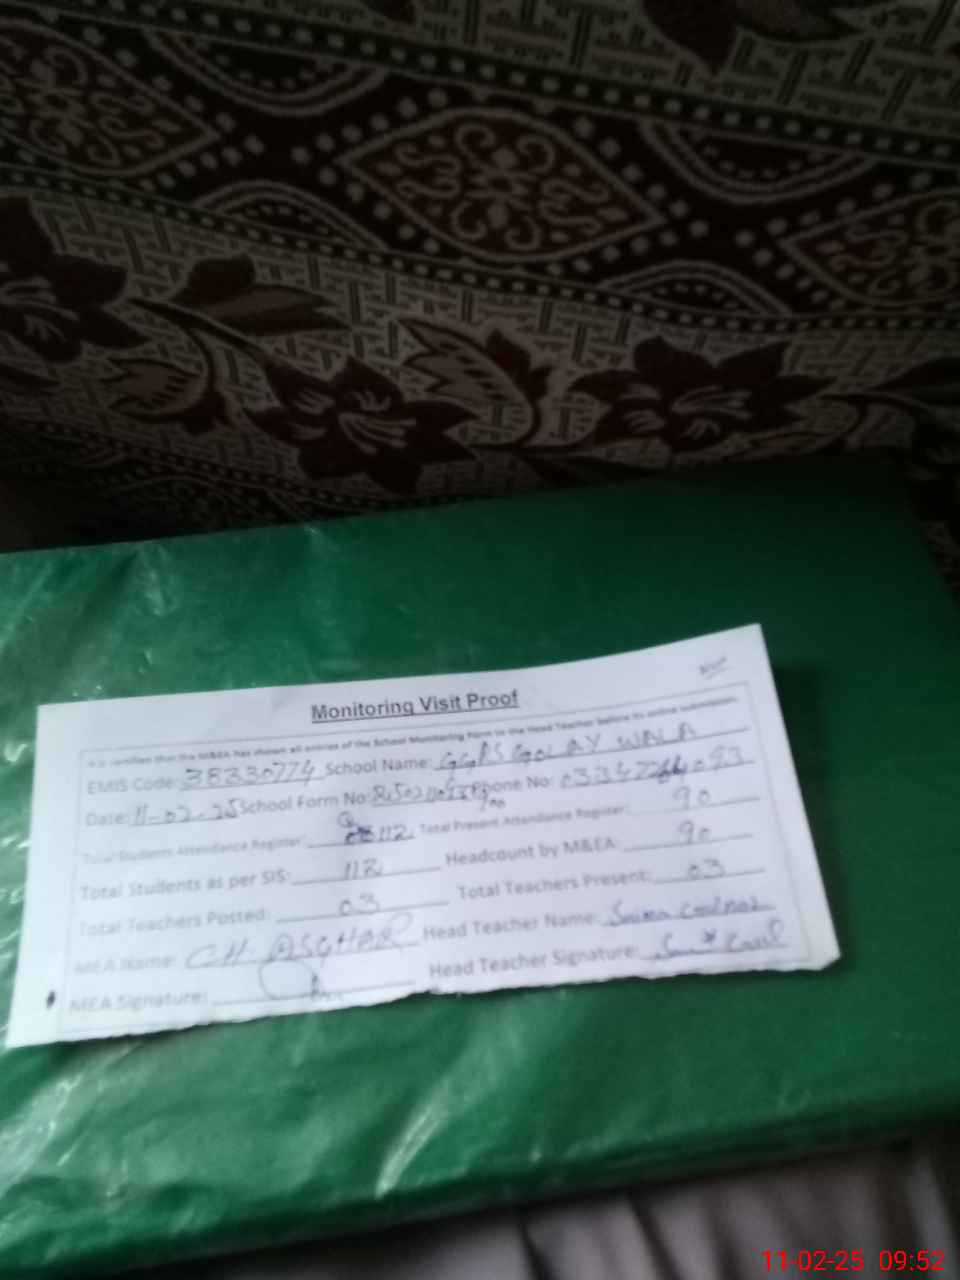 Monitoring Visit Proof
It is certified that the M&EA has shown all entries of the School Monitoring Form to the Head Teacher before its online submission.
EMIS Code: 38330774 School Name: GGPS GOLAY WALA
Date: 11-02-25 School Form No: Phone No:
Total Students Attendance Register: 112 Total Present Attendance Register: 90
Total Students as per SIS: 112 Headcount by M&EA: 90
Total Teachers Posted: 03 Total Teachers Present: 03
MEA Name: CH. ASGHAR Head Teacher Name: Saima
MEA Signature: Head Teacher Signature:
11-02-25 09:52